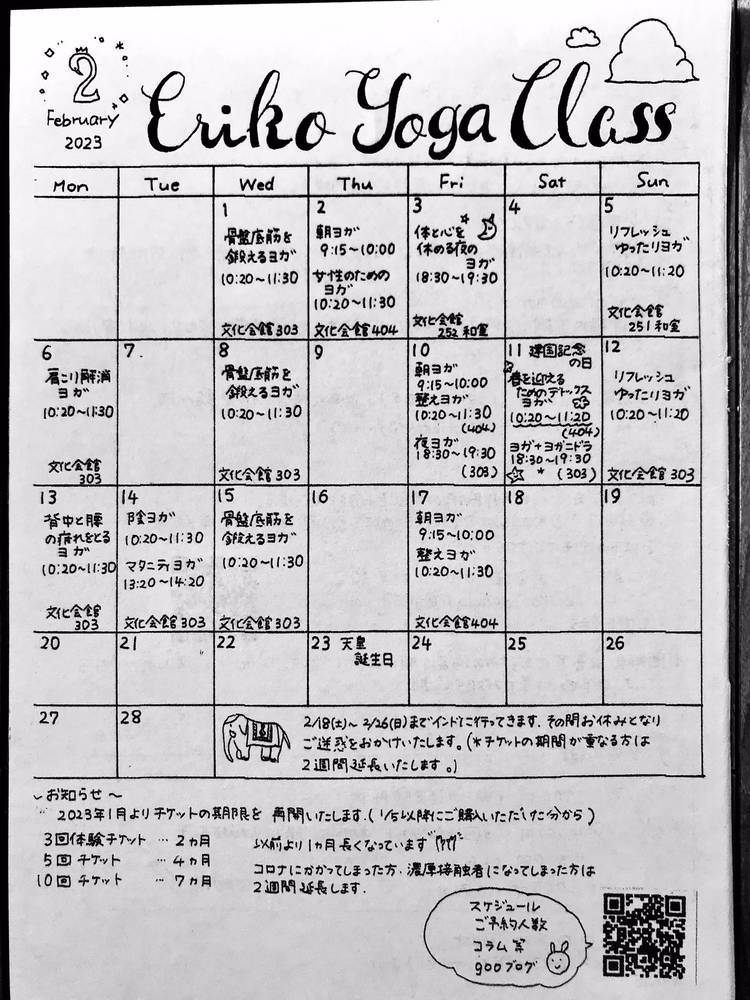 2
February
2023
Eriko Yoga Class
Mon Tue Wed Thu Fri Sat Sun
1
骨盤底筋を
鍛えるヨガ
10:20~11:30
文化会館303
2
朝ヨガ
9:15~10:00
女性のための
ヨガ
10:20~11:30
文化会館404
3
体と心を
休める夜の
ヨガ
18:30~19:30
文化会館
252和室
4
5
リフレッシュ
ゆったりヨガ
10:20~11:20
文化会館
251和室
6
肩こり解消
ヨガ
10:20~11:30
文化会館
303
7
8
骨盤底筋を
鍛えるヨガ
10:20~11:30
文化会館303
9
10
朝ヨガ
9:15~10:00
整えヨガ
10:20~11:30
(404)
夜ヨガ
18:30~19:30
(303)
11 建国記念
の日
春を迎える
ためのデトックス
ヨガ
10:20~11:20
(404)
ヨガ+ヨガニドラ
18:30~19:30
* (303)
12
リフレッシュ
ゆったりヨガ
10:20~11:20
文化会館303
13
背中と腰
の疲れをとる
ヨガ
10:20~11:30
文化会館
303
14
陰ヨガ
10:20~11:30
マタニティヨガ
13:20~14:20
文化会館303
15
骨盤底筋を
鍛えるヨガ
10:20~11:30
文化会館303
16
17
朝ヨガ
9:15~10:00
整えヨガ
10:20~11:30
文化会館404
18
19
20
21
22
23 天皇
誕生日
24
25
26
27
28
2/18(土)~2/26(日)までインドに行ってきます。その間お休みとなり
ご迷惑をおかけいたします。(*チケットの期間が重なる方は
2週間延長いたします。)
~お知らせ~
2023年1月よりチケットの期限を再開いたします。(1/5以降にご購入いただいた分から)
3回体験チケット … 2ヵ月
5回チケット … 4ヵ月
10回チケット … 7ヵ月
以前より1ヵ月長くなっています
コロナにかかってしまった方、濃厚接触者になってしまった方は
2週間延長します。
スケジュール
ご予約人数
コラム等
gooブログ